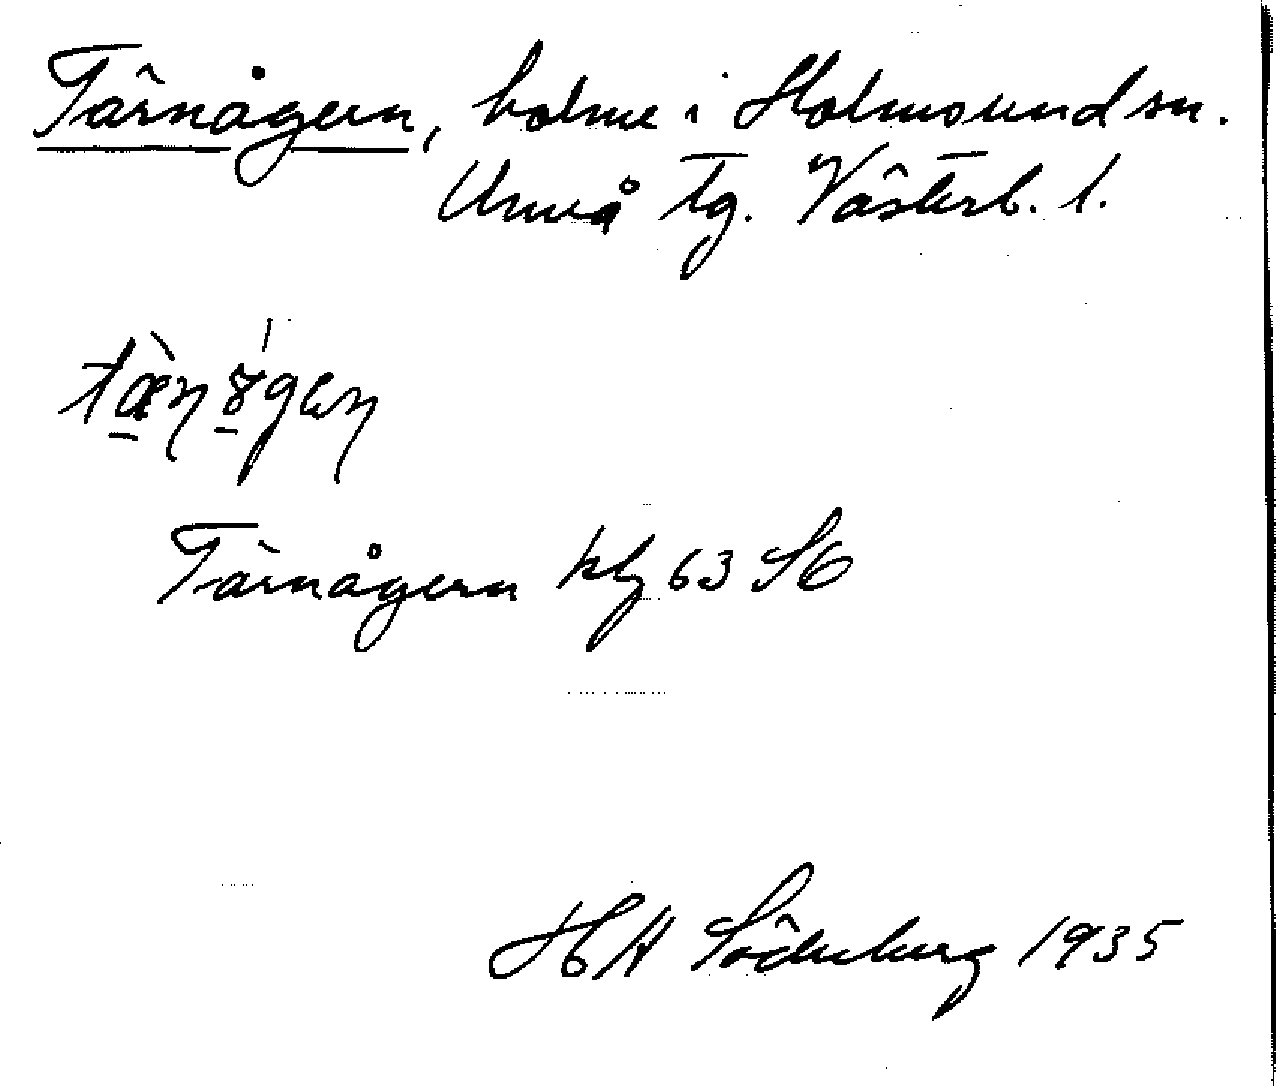 Tärnågern, holme i Holmsund sn.
Umeå tg. Västerb. l.
Tärnågern kbl 63 SO
H A Söderberg 1935